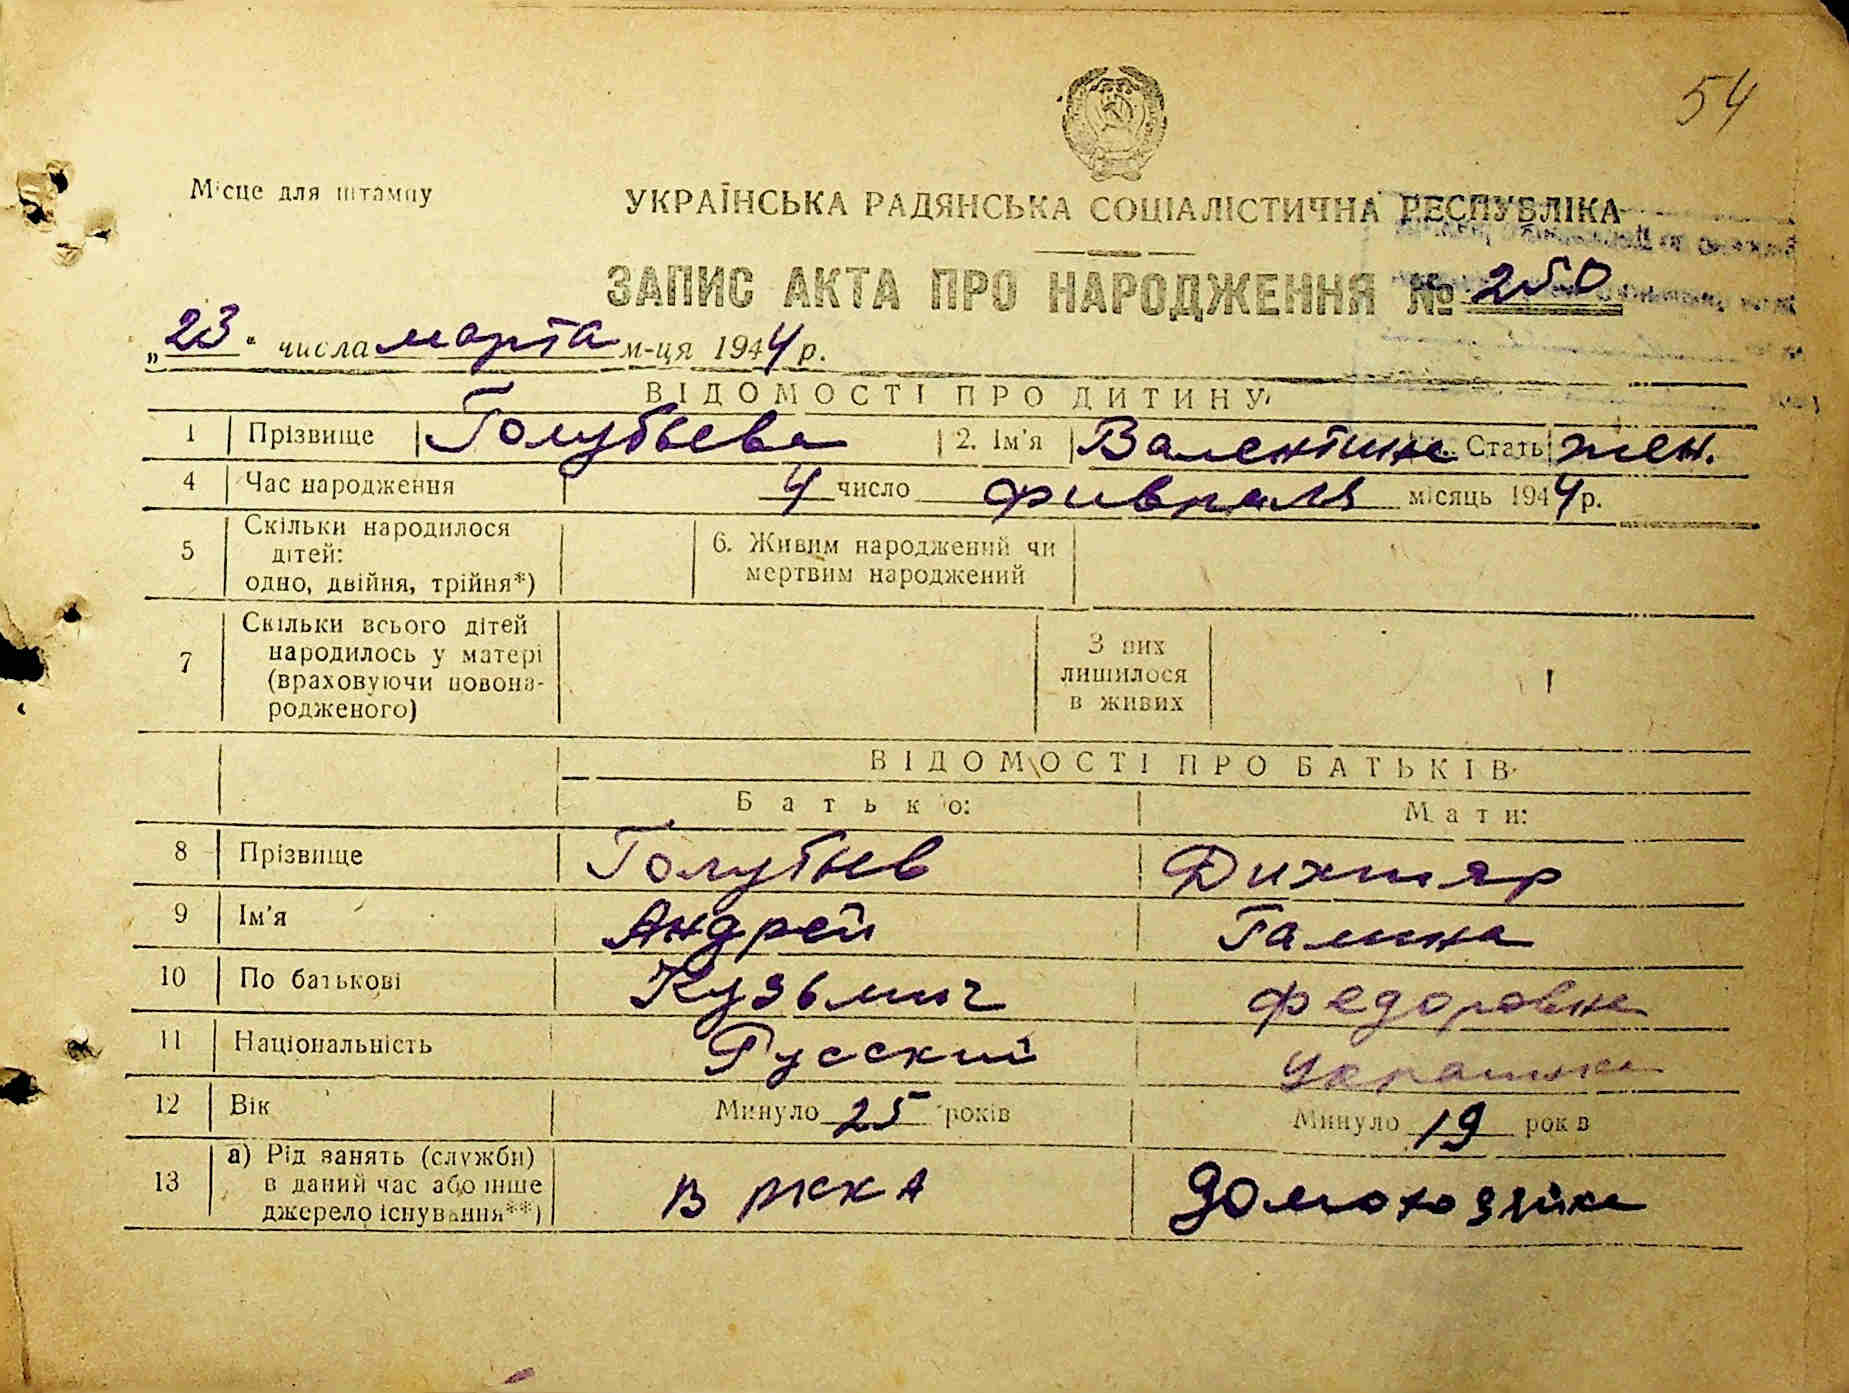 54
Місце для штампу
УКРАЇНСЬКА РАДЯНСЬКА СОЦІАЛІСТИЧНА РЕСПУБЛІКА
ЗАПИС АКТА ПРО НАРОДЖЕННЯ № 250
„23" числа марта м-ця 1944 р.
ВІДОМОСТІ ПРО ДИТИНУ
1 Прізвище Голубьева 2. Ім'я Валентина Стать жен.
4 Час народження 4 число февраля місяць 1944 р.
5 Скільки народилося дітей: одно, двійня, трійня*) 6. Живим народжений чи мертвим народжений
7 Скільки всього дітей народилось у матері (враховуючи новона-родженого) З них лишилося в живих
ВІДОМОСТІ ПРО БАТЬКІВ
Батько: Мати:
8 Прізвище Голубьев Дихтяр
9 Ім'я Андрей Галина
10 По батькові Кузьмич Федоровна
11 Національність Русский Украинка
12 Вік Минуло 25 років Минуло 19 років
13 а) Рід занять (служби) в даний час або інше джерело існування**) В РККА домохозяйка